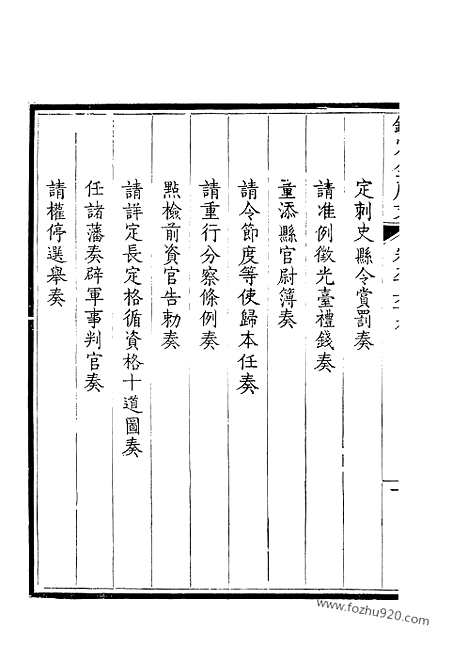 定刺史縣令賞罰奏
請准例徵光臺禮錢奏
量添縣官尉簿奏
請令節度等使歸本任奏
請重行分察條例奏
點檢前資官告勅奏
請詳定長定格循資格十道圖奏
任諸藩奏辟軍事判官奏
請權停選舉奏
www.fozhu920.com